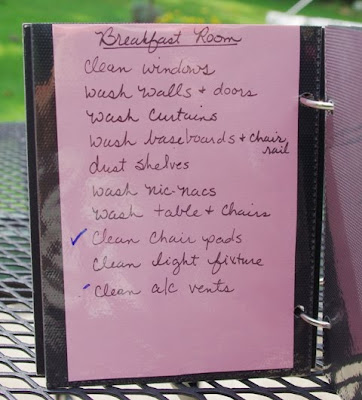 Breakfast Room
Clean windows
Wash walls + doors
Wash curtains
Wash baseboards + chair
rail
dust shelves
Wash nic-nacs
Wash table + chairs
✓ Clean chair pads
Clean light fixture
Clean a/c vents